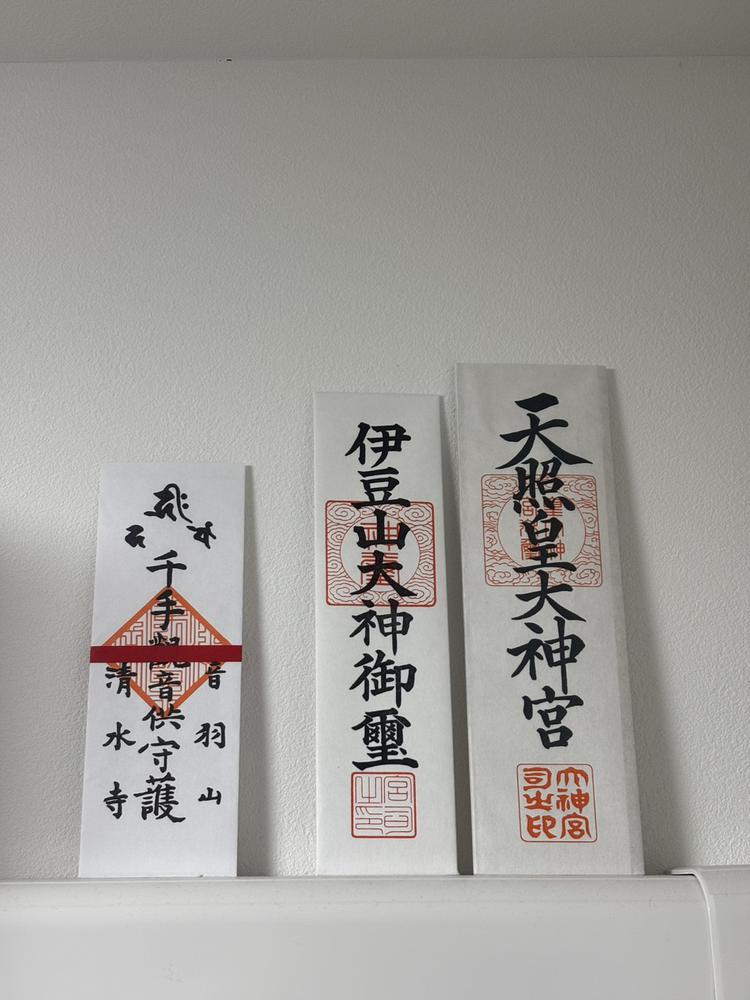 天照皇大神宮
大神宮
司之印
伊豆山大神御璽
宮司
之印
音羽山
千手觀音供守護
清水寺